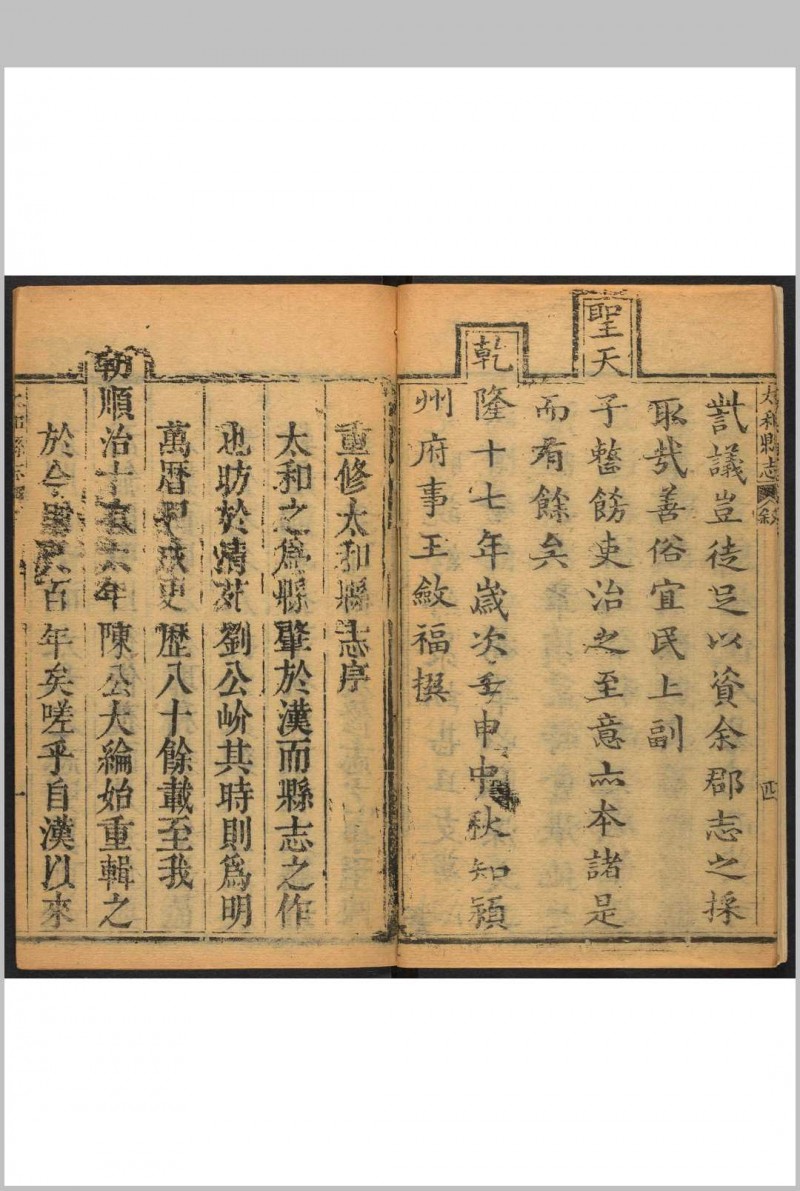 太和縣志 叙 四
議豈徒足以資余郡志之採
取哉善俗宜民上副
聖天子整飭吏治之至意亦本諸是
而有餘矣
乾隆十七年歲次壬申中秋知潁
州府事王斂福撰
重修太和縣志序
太和之為縣肇於漢而縣志之作
也昉於劉公岎其時則為明
萬曆更歷八十餘載至我
朝順治十六年陳公大綸始重輯之
於今百年矣嗟乎自漢以來
一